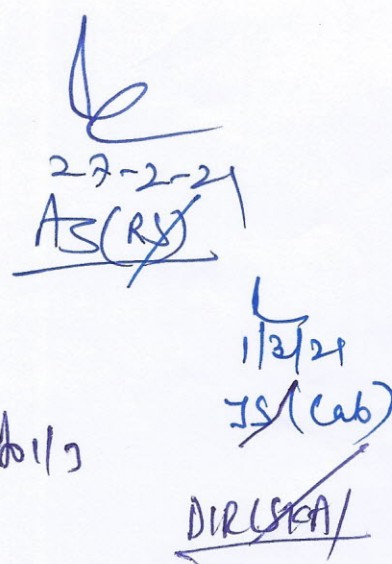 27-2-21
AS(RS)
1/3/21
JS(Cab)
1/3
DIR(SKA)